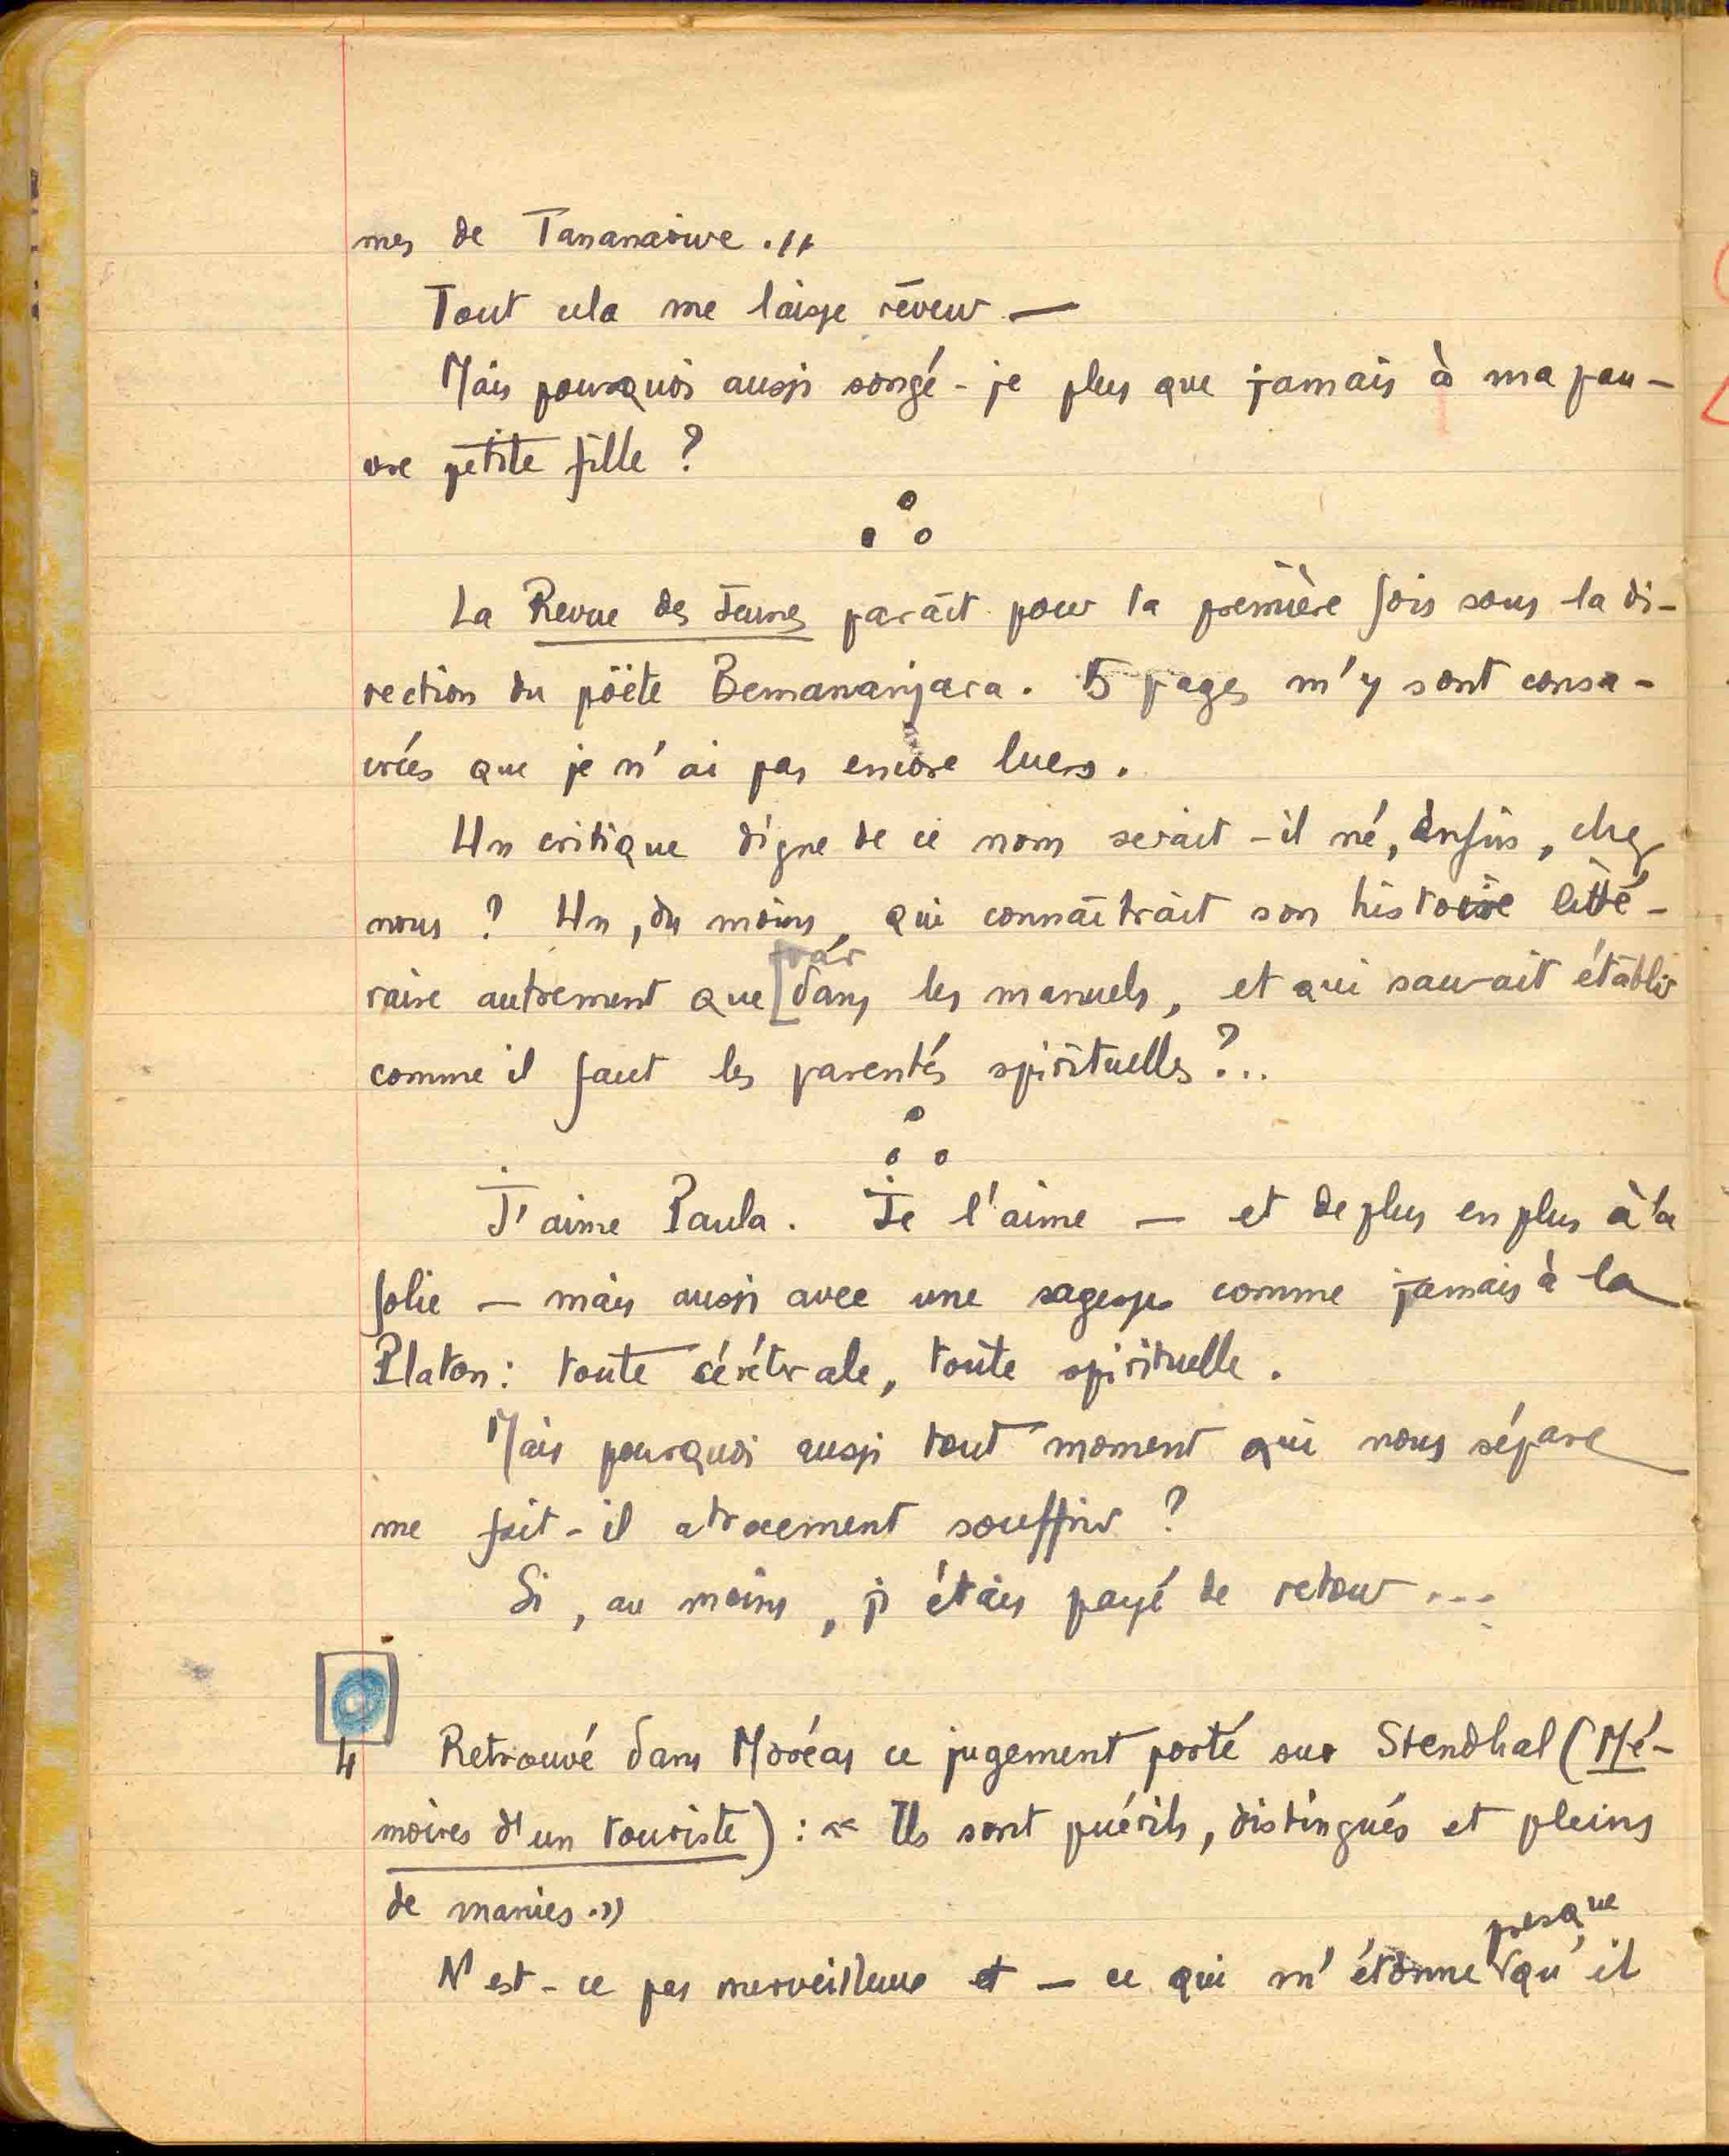 mes de Tananarive. »
Tout cela me laisse rêveur —
Mais pourquoi aussi songé-je plus que jamais à ma pau-
vre petite fille ?
La Revue des Jeunes paraît pour la première fois sous la di-
rection du poëte Bemananjara. 5 pages m'y sont consa-
crées que je n'ai pas encore lues.
Un critique digne de ce nom serait-il né, enfin, chez
nous ? Un, du moins, qui connaîtrait son histoire litté-
par
raire autrement que [dans les manuels, et qui saurait établir
comme il faut les parentés spirituelles ?..
J'aime Paula. Je l'aime — et de plus en plus à la
folie — mais aussi avec une sagesse comme jamais à la
Platon : toute cérébrale, toute spirituelle.
Mais pourquoi aussi tout moment qui nous sépare
me fait-il atrocement souffrir ?
Si, au moins, j'étais payé de retour ...
4 Retrouvé dans Moréas ce jugement porté sur Stendhal (Mé-
moires d'un touriste) : « Ils sont puérils, distingués et pleins
de manies. »
presque
N'est-ce pas merveilleux et — ce qui m'étonne qu'il